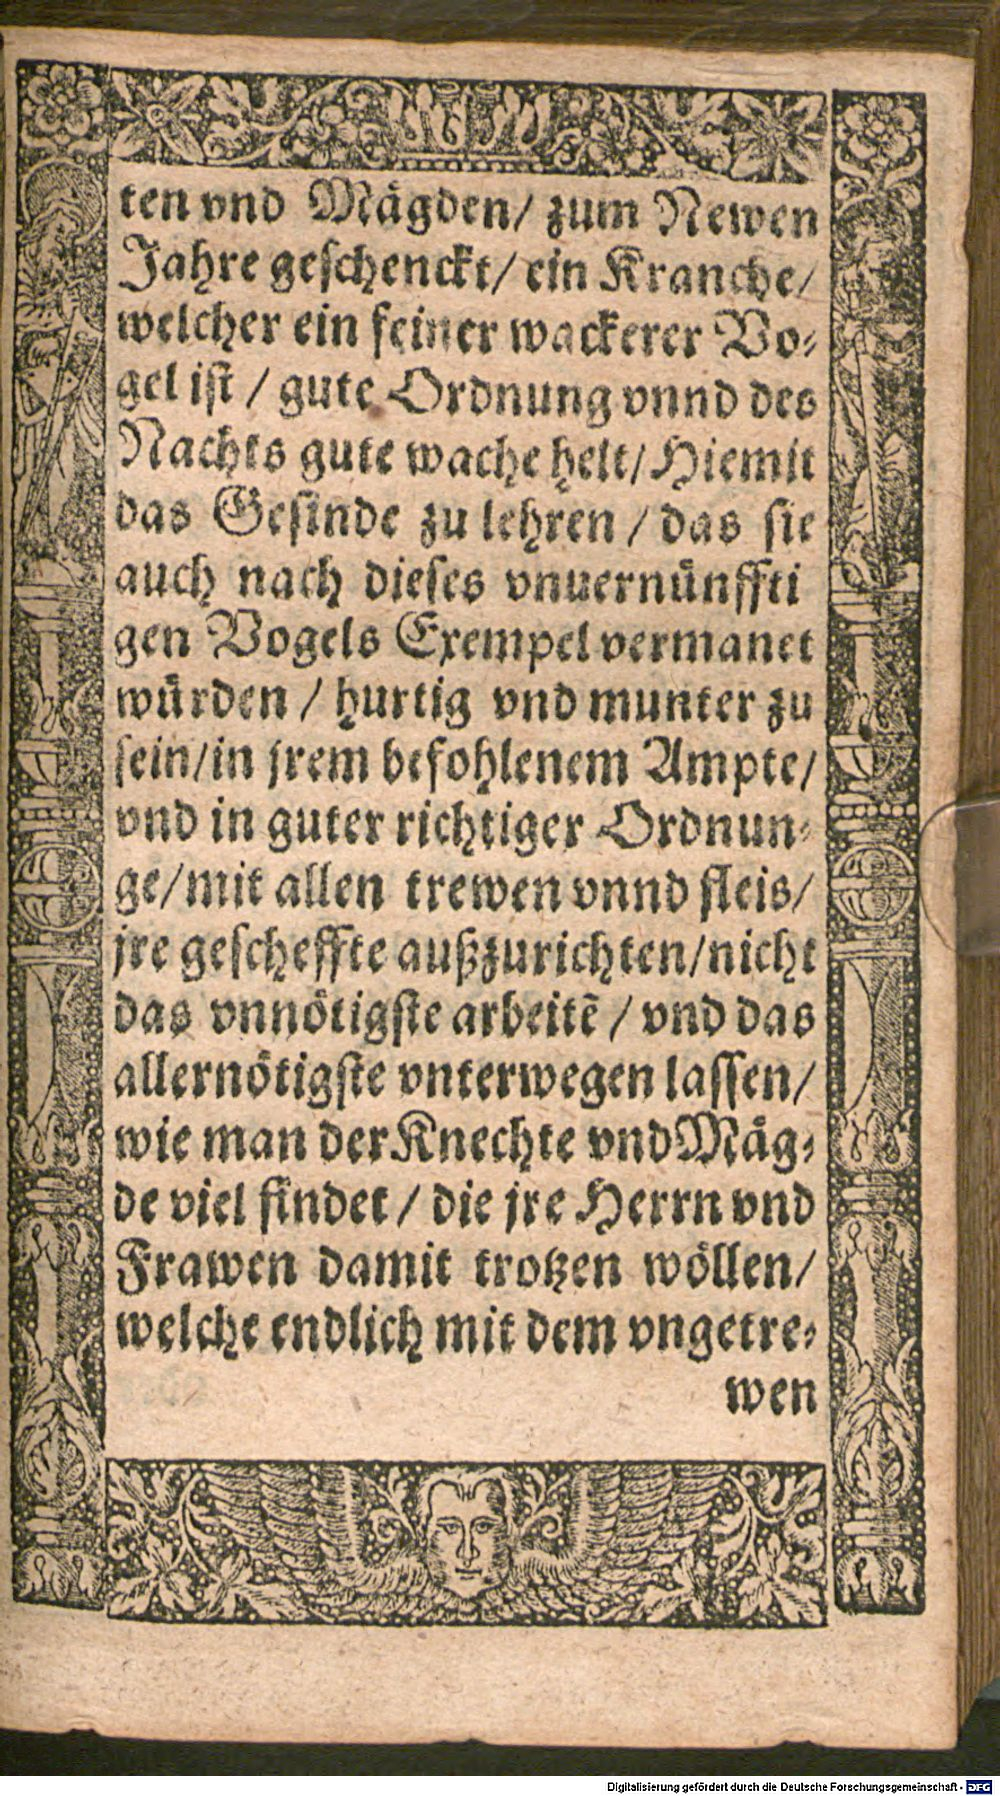 ten vnd Mägden/ zum Newen
Jahre geschenckt/ ein Kranche/
welcher ein feiner wackerer Vo-
gel ist / gute Ordnung vnnd des
Nachts gute wache helt/ Hiemit
das Gesinde zu lehren / das sie
auch nach dieses vnuernünffti
gen Vogels Exempel vermanet
würden / hurtig vnd munter zu
sein/in jrem befohlenem Ampte/
vnd in guter richtiger Ordnun-
ge/mit allen trewen vnnd fleis/
jre gescheffte außzurichten/nicht
das vnnötigste arbeitē / vnd das
allernötigste vnterwegen lassen/
wie man der Knechte vnd Mäg-
de viel findet / die jre Herrn vnd
Frawen damit trotzen wöllen/
welche endlich mit dem vngetre-
wen
Digitalisierung gefördert durch die Deutsche Forschungsgemeinschaft - DFG